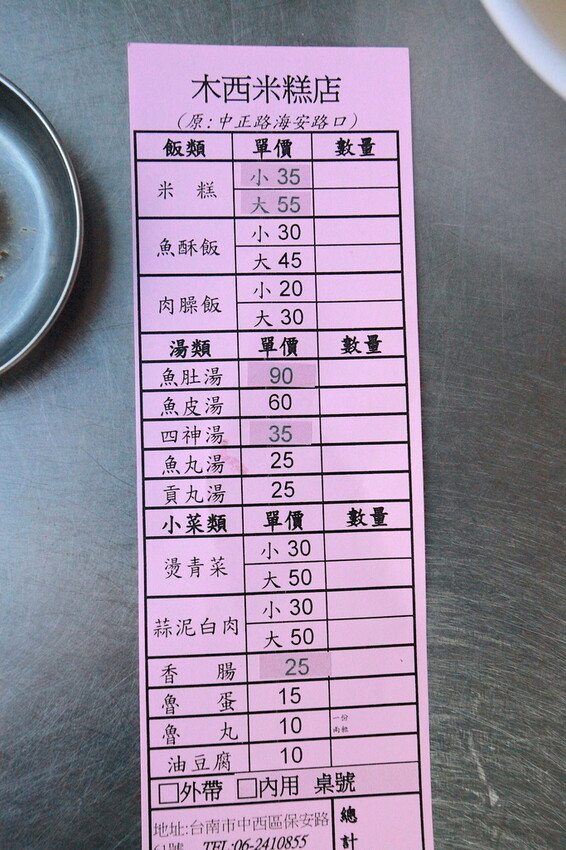 木西米糕店
(原:中正路海安路口)
飯類 單價 數量
米糕 小 35
大 55
魚酥飯 小 30
大 45
肉臊飯 小 20
大 30
湯類 單價 數量
魚肚湯 90
魚皮湯 60
四神湯 35
魚丸湯 25
貢丸湯 25
小菜類 單價 數量
燙青菜 小 30
大 50
蒜泥白肉 小 30
大 50
香腸 25
魯蛋 15
魯丸 10 一份
兩粒
油豆腐 10
□外帶 □內用 桌號
地址:台南市中西區保安路 總
TEL:06-2410855 計